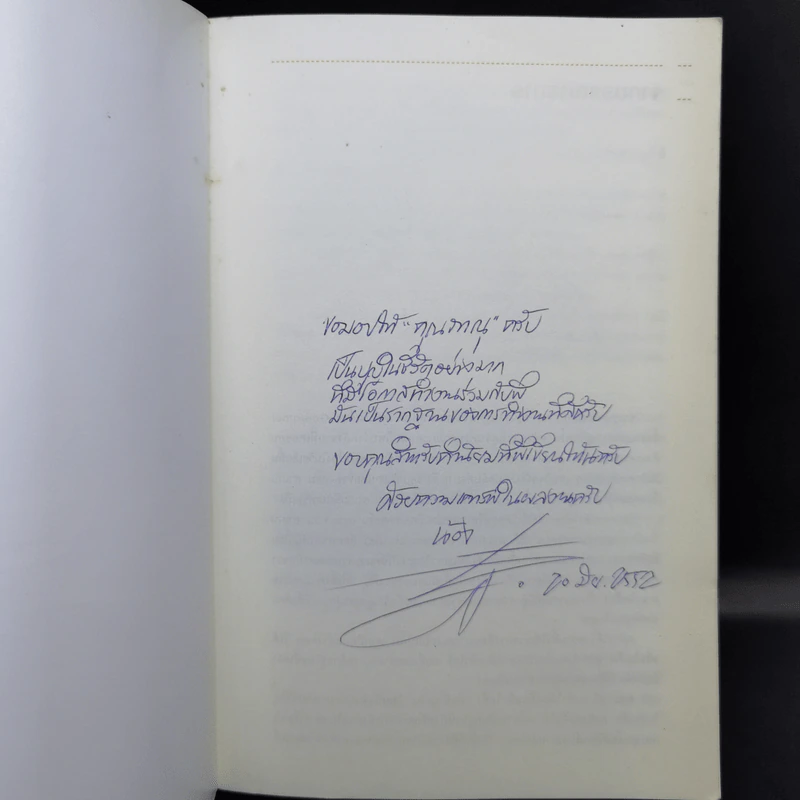 ขอมอบให้ "คุณภาณุ" ครับ
เป็นบุญในชีวิตอย่างมาก
ที่มีโอกาสทำงานร่วมกับพี่
มันเป็นรากฐานของการทำงานที่ดีครับ
ขอบคุณสำหรับคำนิยมที่พี่เขียนให้ครับ
ด้วยความเคารพในผลงานครับ
น้อง
20 มิย. 2552